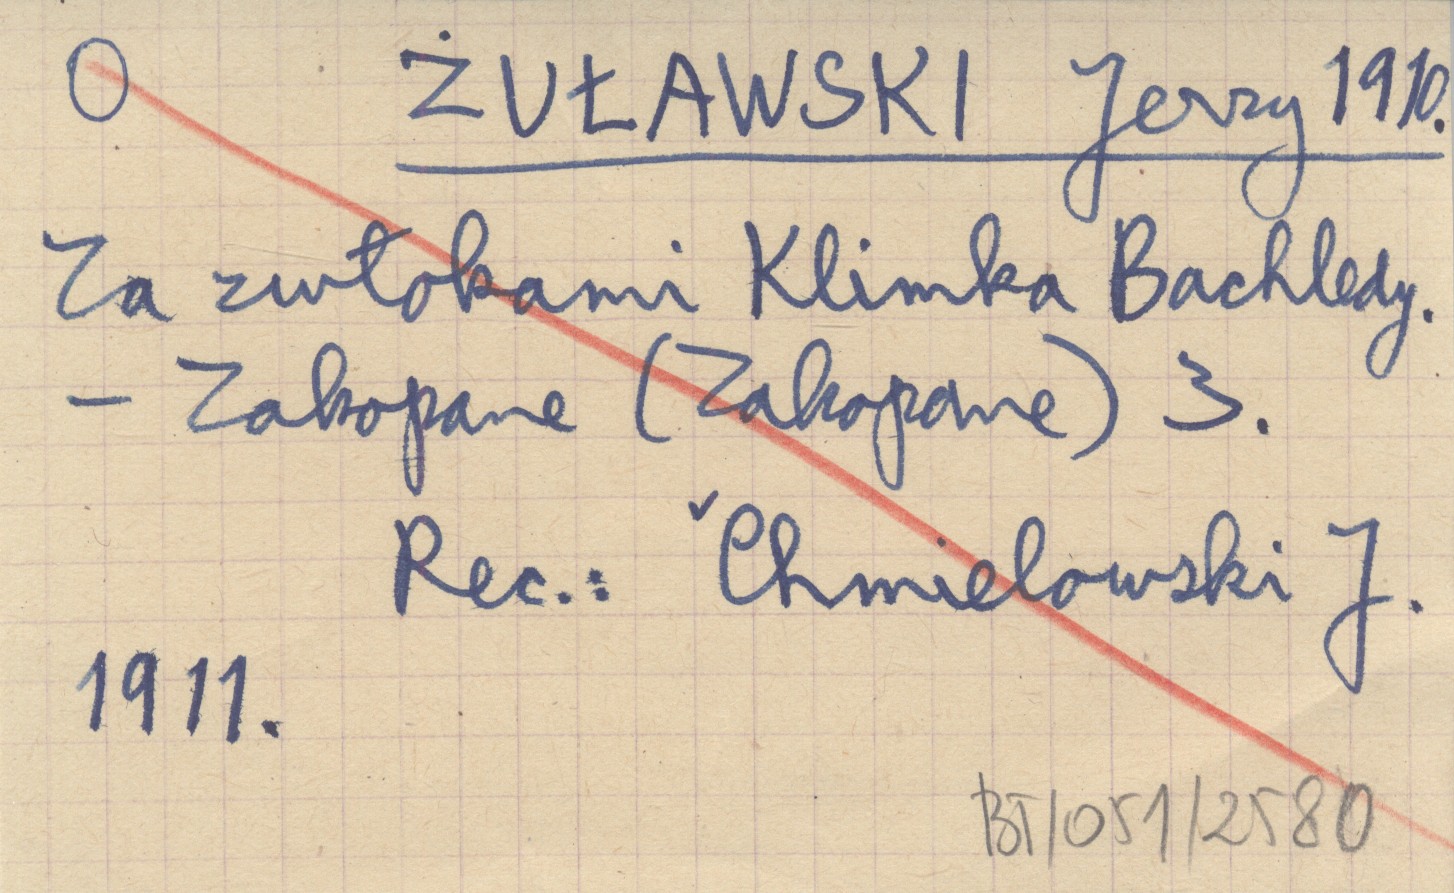 O ŻUŁAWSKI Jerzy 1910.
Za zwłokami Klimka Bachledy.
- Zakopane (Zakopane) 3.
Rec.: ˇChmielowski J.
1911.
BT/051/2580